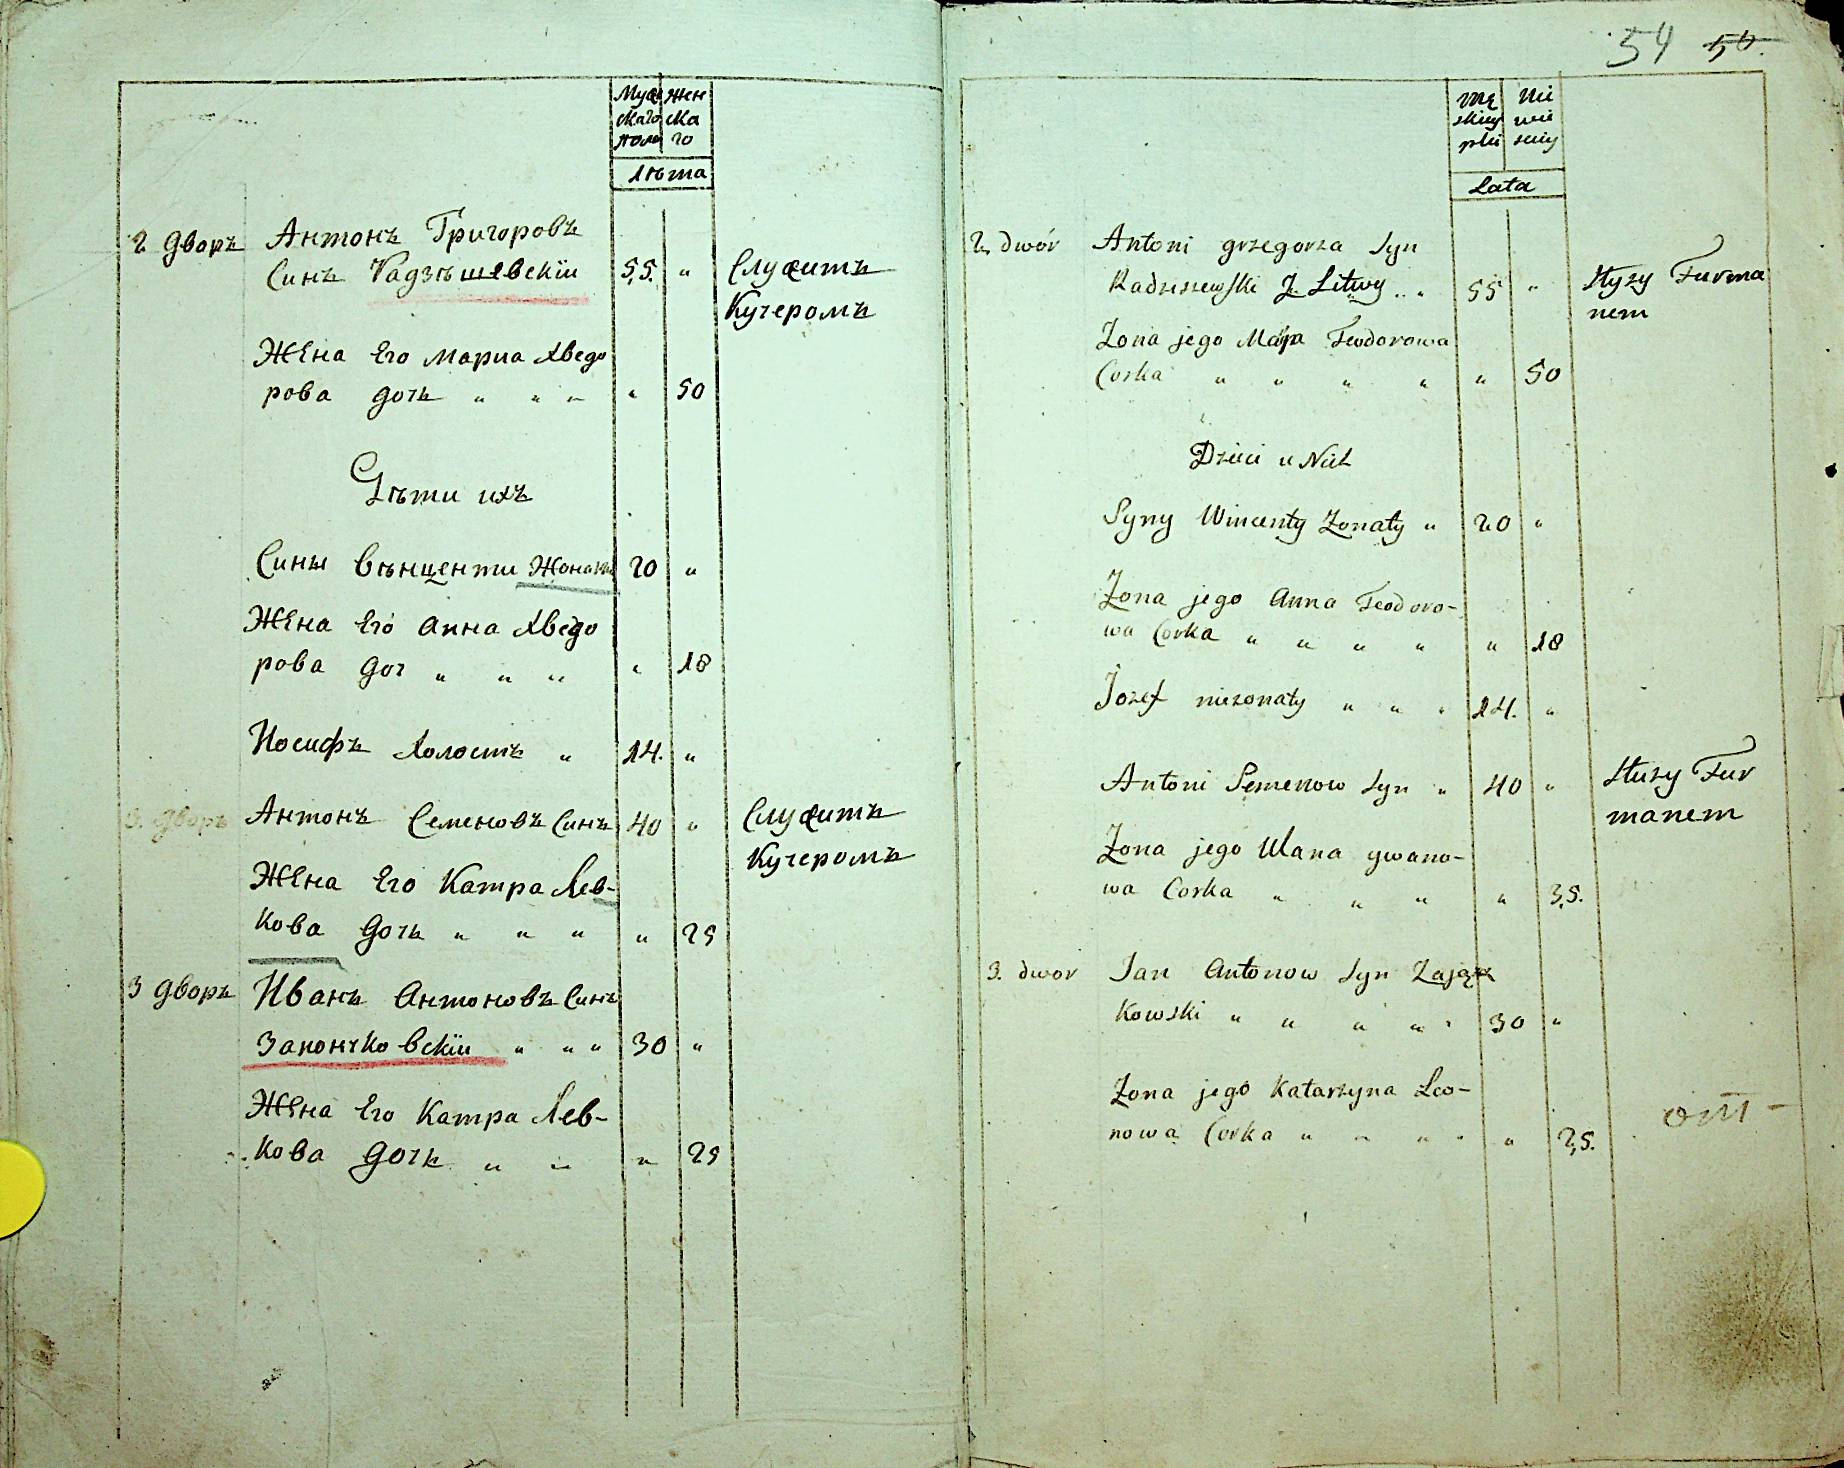 Муже Жен
скаго ска
пола го
лѣта
2 дворъ Антонъ Григоровъ
Синъ Радзѣшевскіи 55. " Служитъ
Кучеромъ
Жена Его Мариа Хведо
рова дочь " " " " 50
Дѣти ихъ
Сины Вѣнценти Жонаты 20 "
Жена Его Анна Хведо
рова доч " " " " 18
Иосифъ Холостъ " 14. "
3. дворъ Антонъ Семеновъ Синъ 40 " Служитъ
Кучеромъ
Жена Его Катра Лев-
кова дочь " " " " 25
3 дворъ Иванъ Антоновъ Синъ
Заиончковскіи " " " 30 "
Жена Его Катра Лев-
кова дочь " " " 25
54 50.
Mę Że
skiey
płci skiey
Lata
2. dwór Antoni grzegorza Syn
Radziszewski Z Litwy " " 55 " Służy Furma
nem
Żona jego Marja Teodorowa
Corka " " " " " 50
Dzieci u Nich
Syny Wincenty Żonaty " 20 "
Żona jego Anna Teodoro-
wa Corka " " " " " 18
Jozef nieżonaty " " " 14. "
Antoni Semenow Syn " 40 " Służy Fur
manem
Żona jego Ulana ywano-
wa Corka " " " " 35.
3. dwor Jan Antonow Syn Zającz
Kowski " " " " " 30 "
Żona jego Katarzyna Leo-
nowa Corka " " " " " 25.